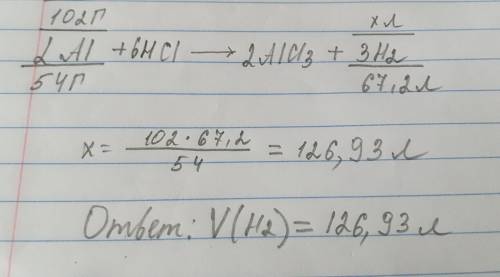 102г        xл
2Al + 6HCl ⟶ 2AlCl3 + 3H2
54г        67,2л
x = 102·67,2 / 54 = 126,93 л
Ответ: V(H2) = 126,93 л